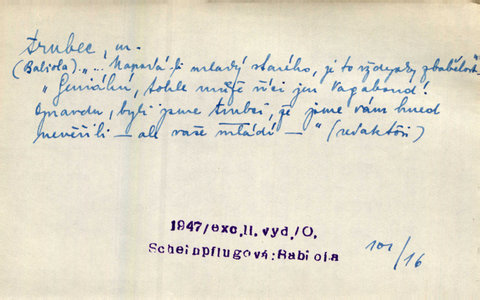 trubec, m.
(Babiola) „... Napadá-li mladý starého, je to vždycky zbabělost."
„Geniální, tohle může říci jen Vagabund!
opravdu, byli jsme trubci, že jsme vám hned
nevěřili – ale vaše mládí – " (redaktoři)
1947/exc.II.vyd./O.
Scheinpflugová:Babiola
101/16